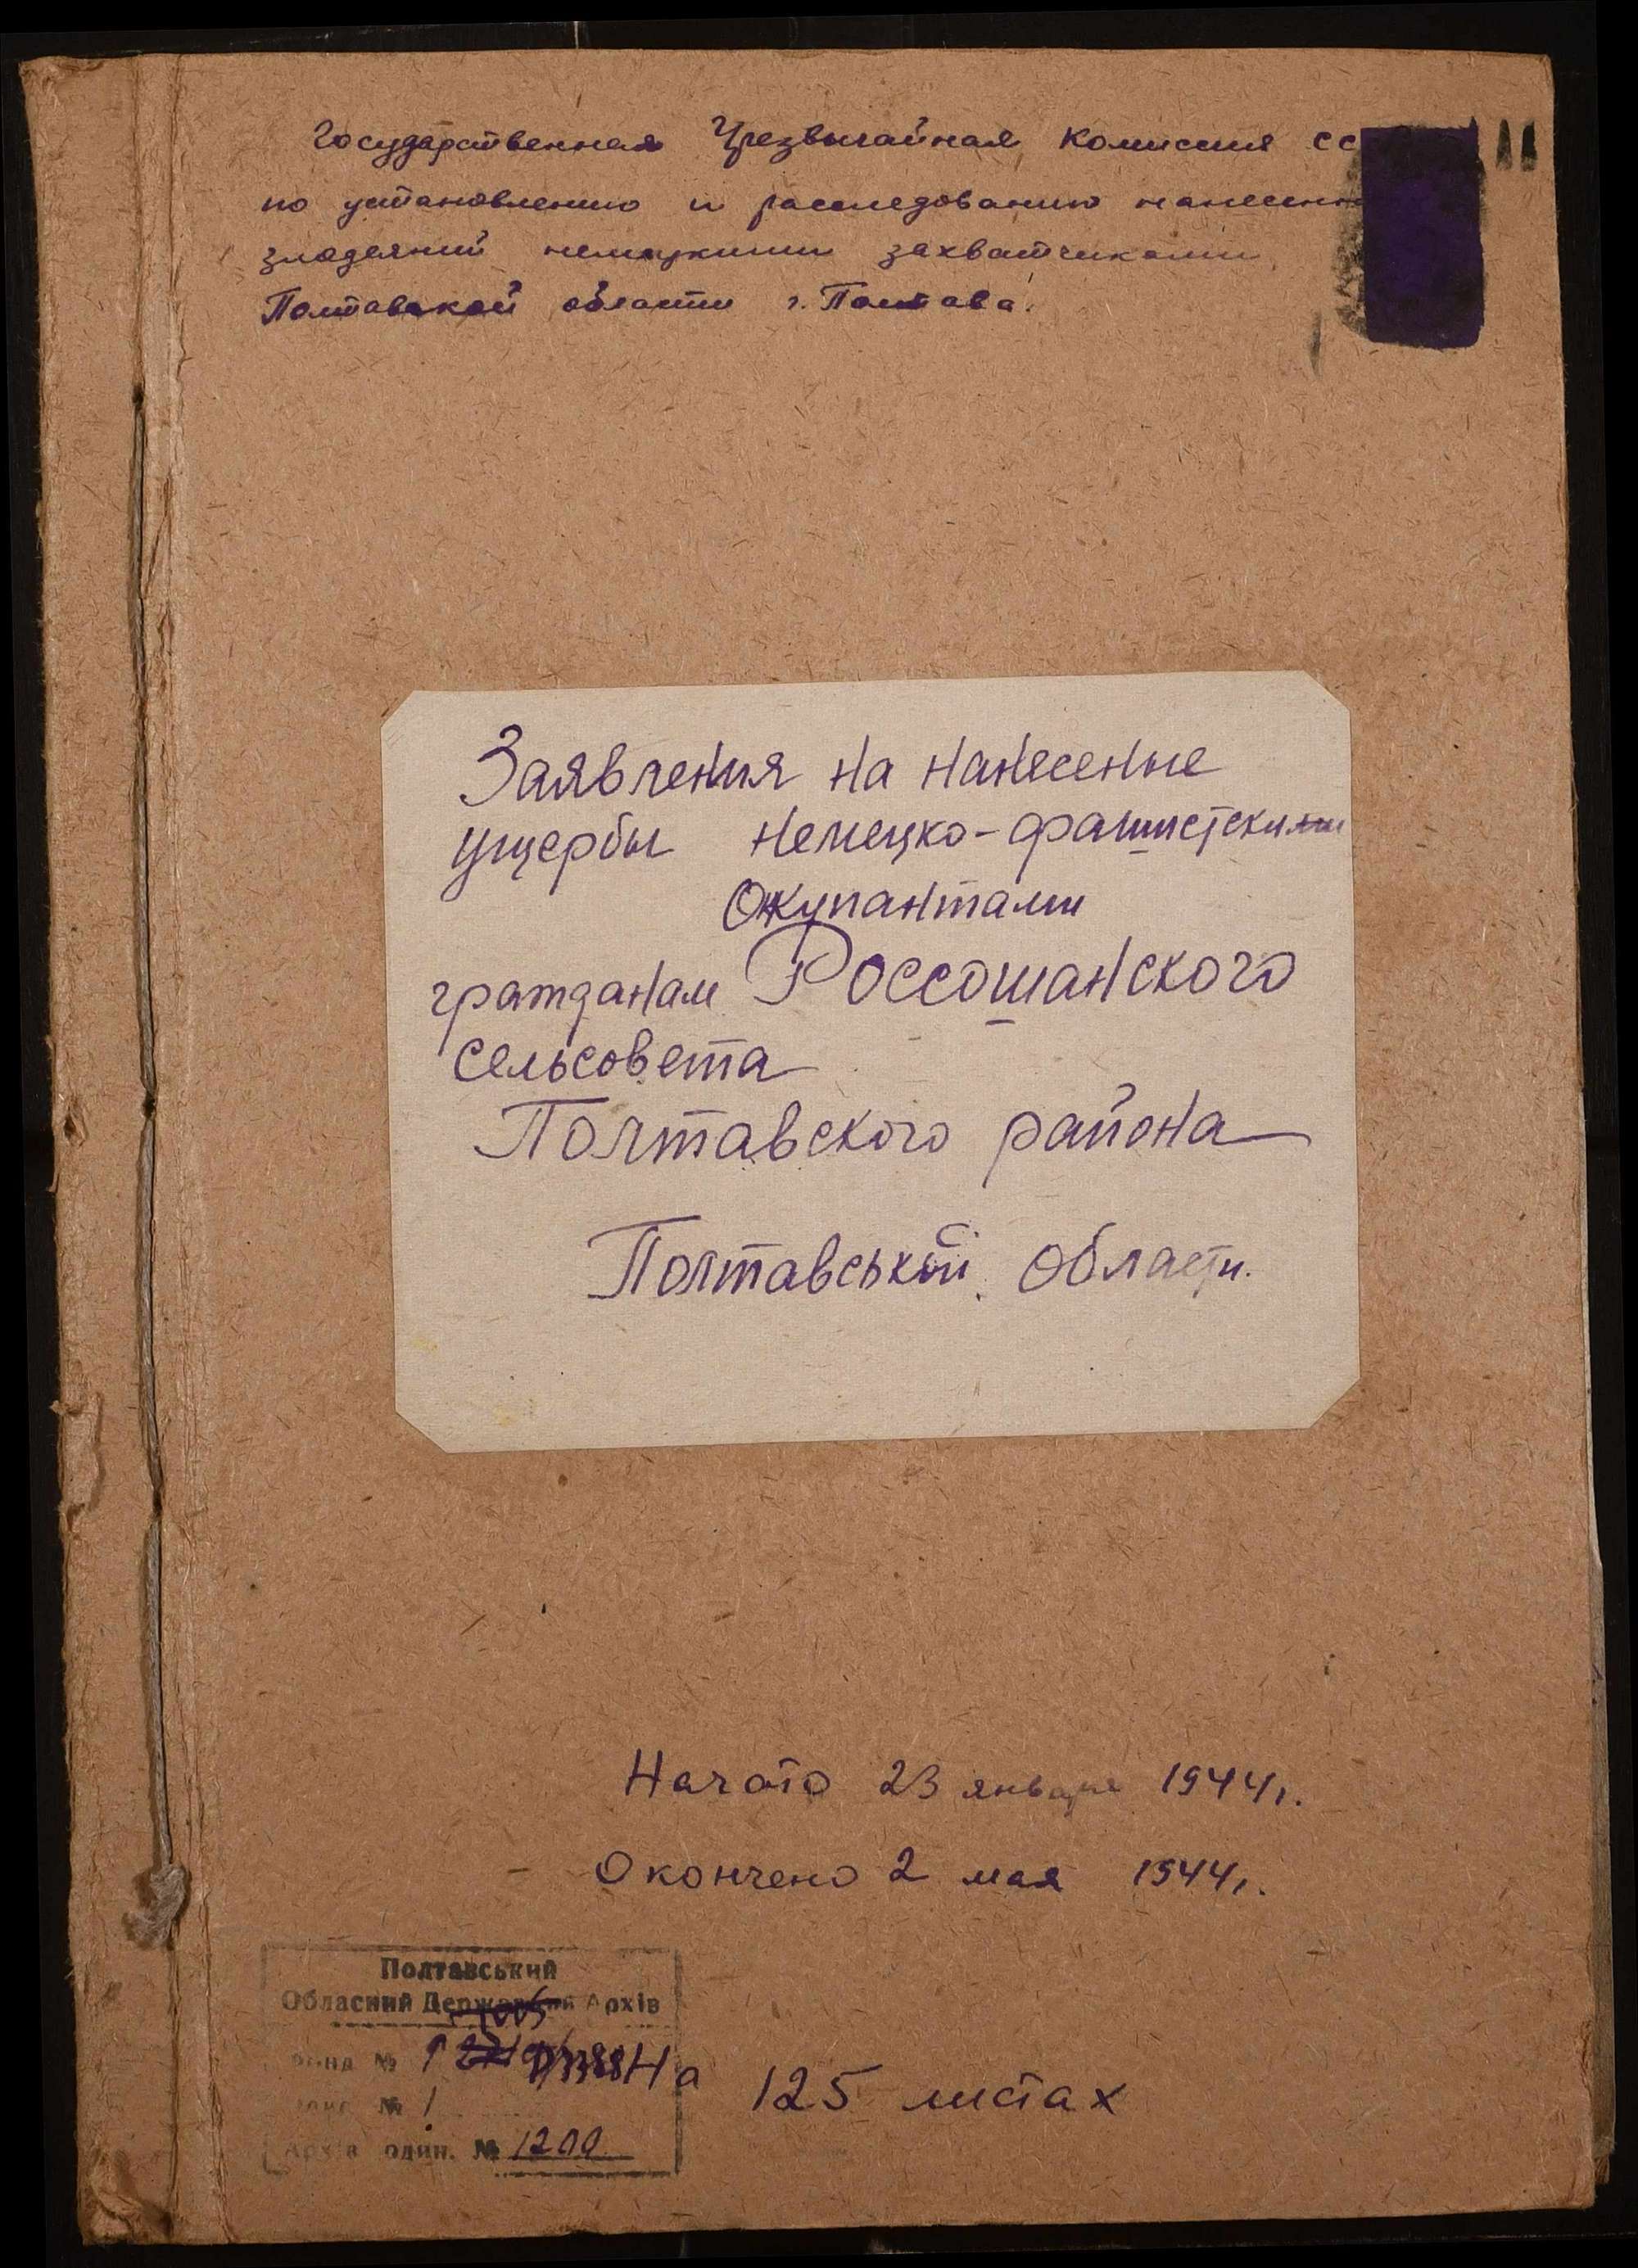 Государственная Чрезвычайная Комиссия СС
по установлению и расследованию нанесенн
злодеяний немецкими захватчиками
Полтавской области г. Полтава.
Заявления на нанесеные
ущербы немецко-фашистскими
Окупантами
гражданам Россошанского
сельсовета
Полтавского района
Полтавській Области.
Начато 23 января 1944г.
Окончено 2 мая 1944г.
Полтавський
Обласний Державний Архів
Фонд №
На 125 листах
№ 1
Архів один. № 1200